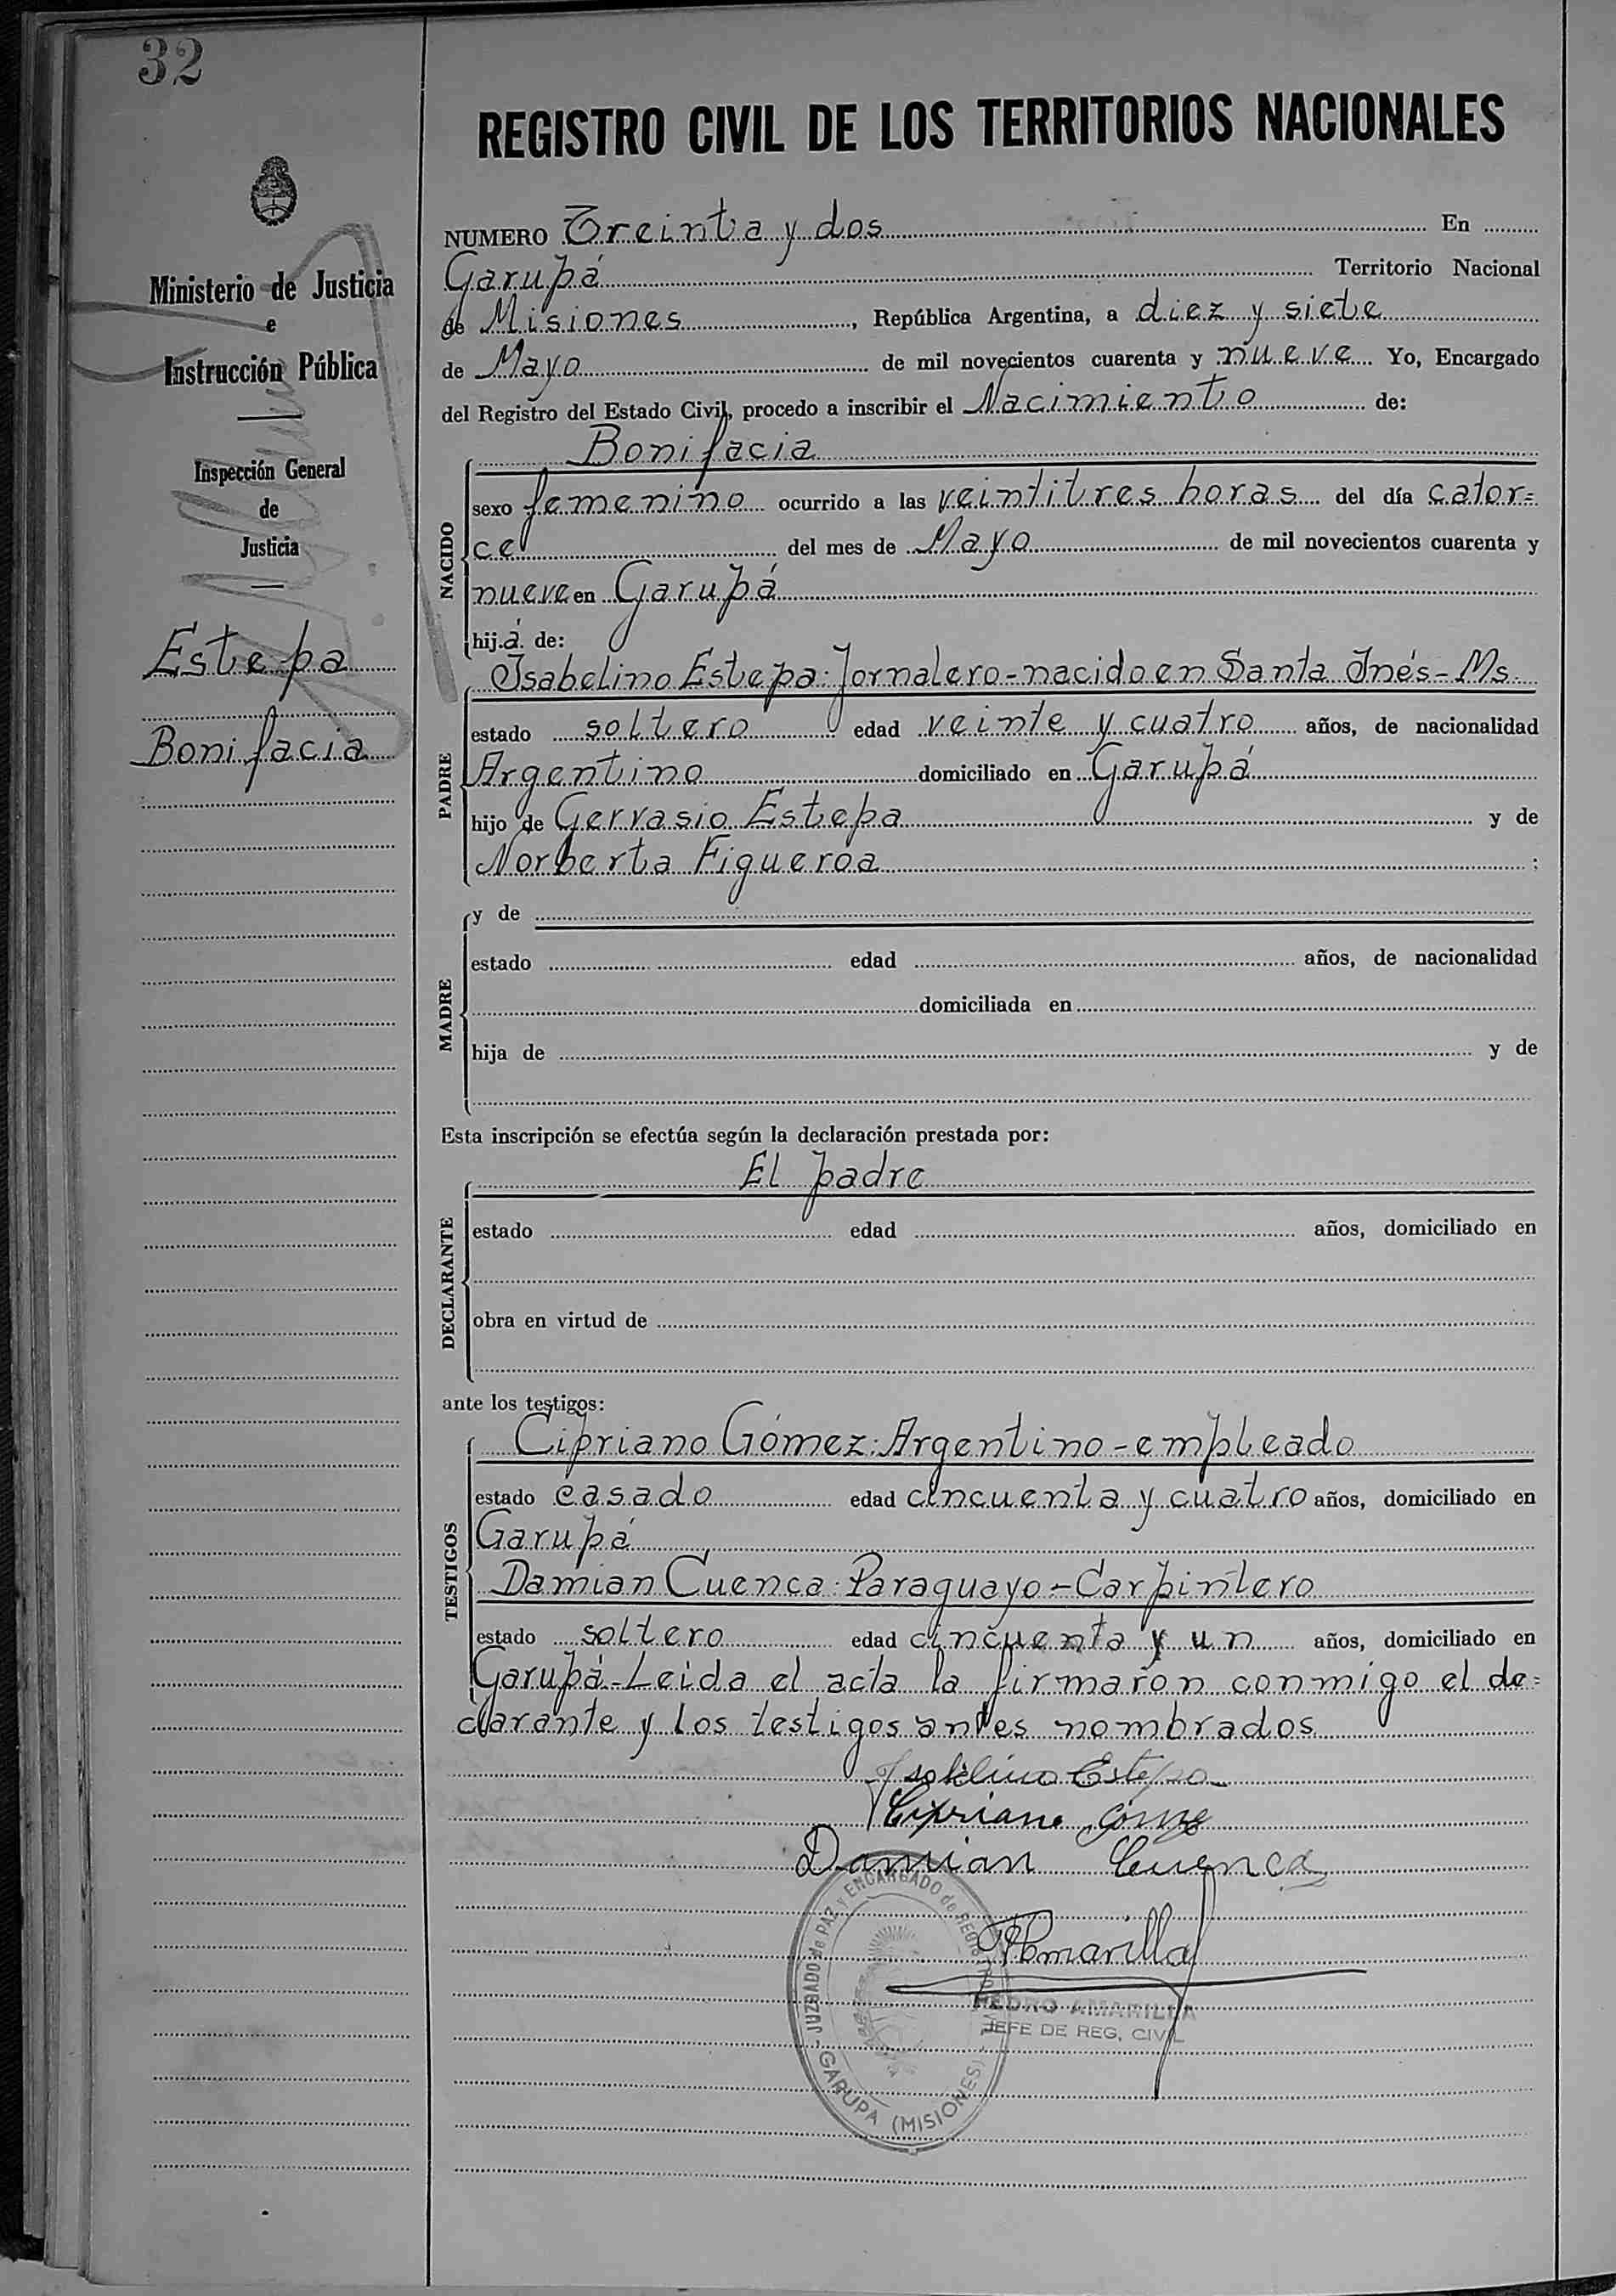 32
REGISTRO CIVIL DE LOS TERRITORIOS NACIONALES
Ministerio de Justicia
e
Instrucción Pública
Inspección General
de
Justicia
Estepa
Bonifacia
NUMERO Treinta y dos En
Garupá Territorio Nacional
de Misiones, República Argentina, a diez y siete
de Mayo de mil novecientos cuarenta y nueve Yo, Encargado
del Registro del Estado Civil, procedo a inscribir el Nacimiento de:
NACIDO
Bonifacia
sexo femenino ocurrido a las veintitres horas del día cator=
ce del mes de Mayo de mil novecientos cuarenta y
nueve en Garupá
hija de:
PADRE
Isabelino Estepa: Jornalero-nacido en Santa Inés-Ms.
estado soltero edad veinte y cuatro años, de nacionalidad
Argentino domiciliado en Garupá
hijo de Gervasio Estepa y de
Norberta Figueroa ;
MADRE
y de
estado edad años, de nacionalidad
domiciliada en
hija de y de
Esta inscripción se efectúa según la declaración prestada por:
DECLARANTE
El padre
estado edad años, domiciliado en
obra en virtud de
ante los testigos:
TESTIGOS
Cipriano Gómez: Argentino-empleado
estado casado edad cincuenta y cuatro años, domiciliado en
Garupá
Damian Cuenca: Paraguayo-Carpintero
estado soltero edad cincuenta y un años, domiciliado en
Garupá-Leida el acta la firmaron conmigo el de=
clarante y los testigos antes nombrados
Estepa
Cipriano
Damian Cuenca
PAmarilla
JUZGADO de PAZ y ENCARGADO de REGISTRO CIVIL
GARUPA (MISIONES)
PEDRO AMARILLA
JEFE DE REG. CIVIL